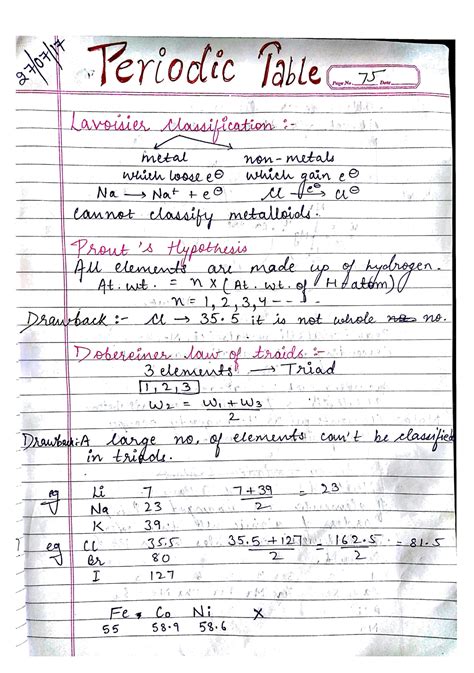 27/07/17
Periodic Table
Page No. 75 Date
Lavoisier Classification :-
metal non-metals
which loose e⊖ which gain e⊖
Na → Na⁺ + e⊖ Cl —e⊖→ Cl⊖
Cannot classify metalloids.
Prout's Hypothesis
All elements are made up of hydrogen.
At. wt. = n x (At. wt. of H atom)
n = 1, 2, 3, 4 - - - .
Drawback :- Cl → 35.5 it is not whole no.
Dobereiner law of traids :-
3 elements → Triad
1, 2, 3
W₂ = W₁ + W₃ / 2
Drawback: A large no. of elements can't be classified
in triads.
eg Li 7 7 + 39 / 2 = 23
Na 23
K 39
eg Cl 35.5 35.5 + 127 / 2 = 162.5 / 2 = 81.5
Br 80
I 127
Fe Co Ni X
55 58.9 58.6